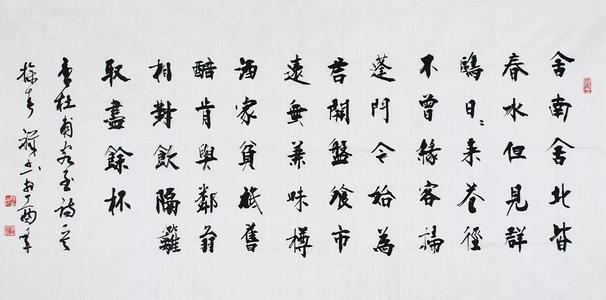 舍南舍北皆
春水但見群
鷗日〻来花徑
不曾緣客掃
蓬門今始為
君開盤飧市
遠無兼味樽
酒家貧祇舊
醅肯與鄰翁
相對飲隔籬
取盡餘杯
唐杜甫客至詩
於丁酉年